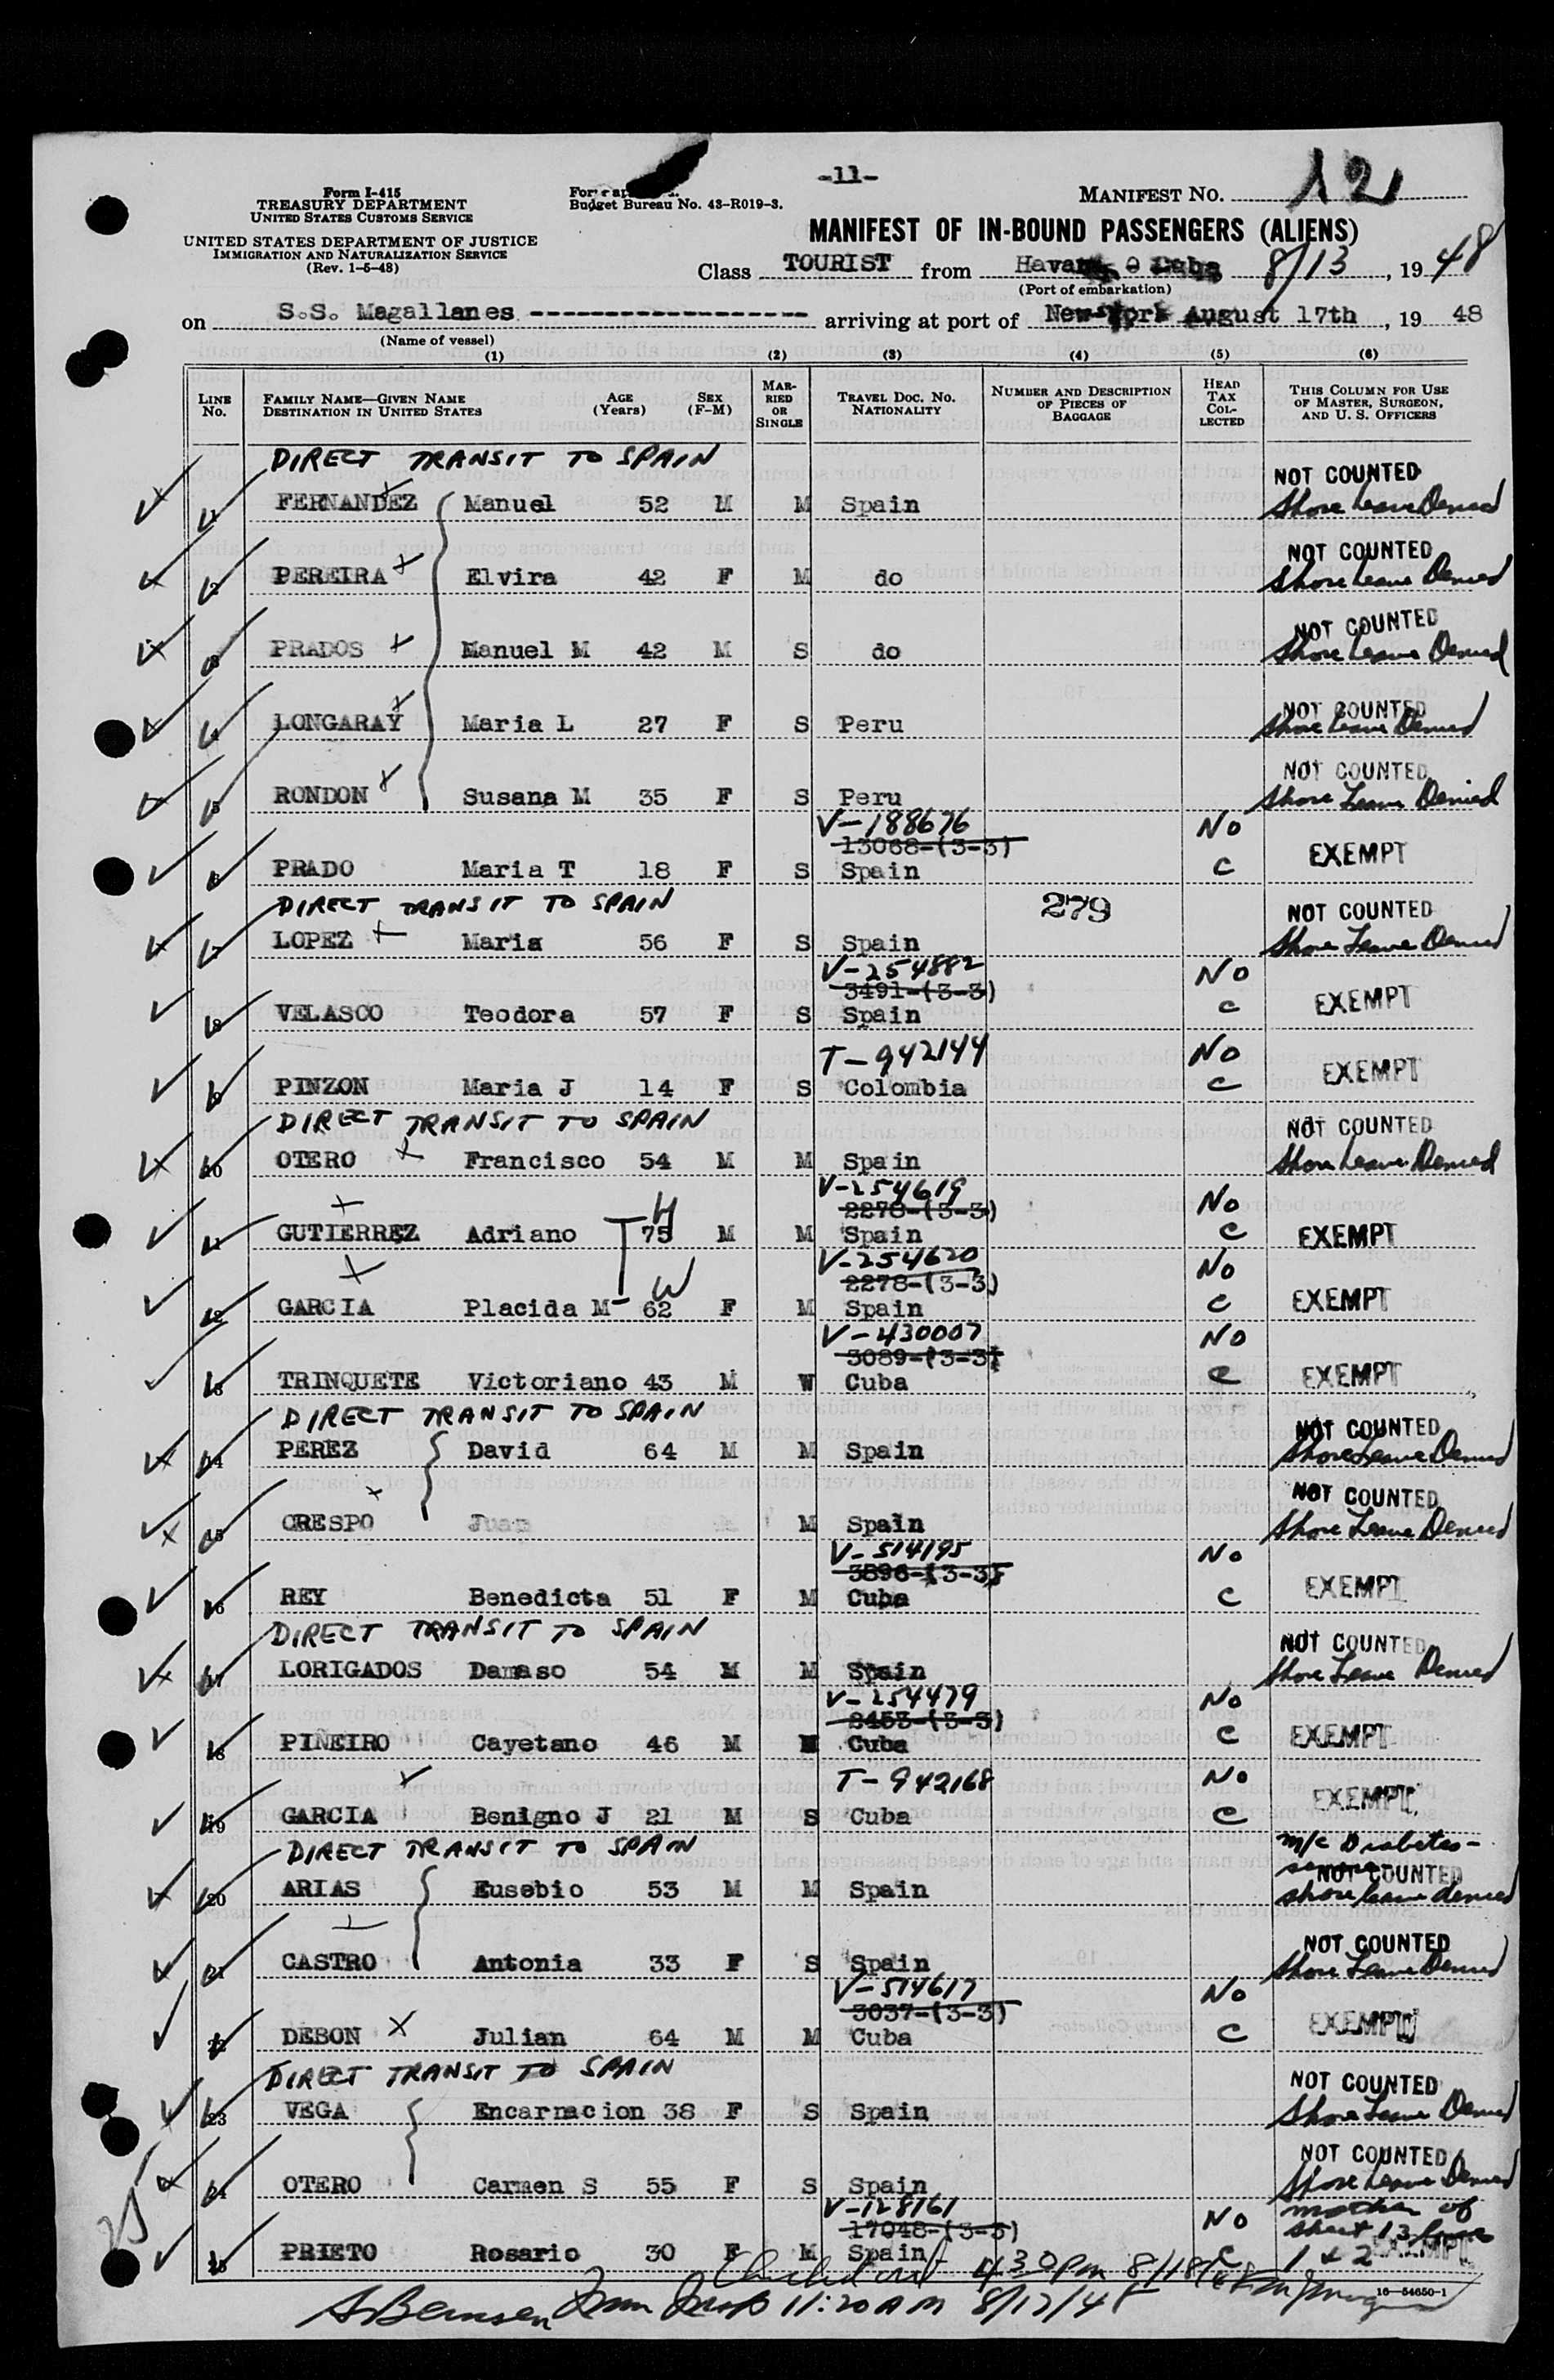 -11-
Form I-415
TREASURY DEPARTMENT
UNITED STATES CUSTOMS SERVICE
UNITED STATES DEPARTMENT OF JUSTICE
IMMIGRATION AND NATURALIZATION SERVICE
(Rev. 1-5-48)
Budget Bureau No. 43-R019-3.
MANIFEST NO. 121
MANIFEST OF IN-BOUND PASSENGERS (ALIENS)
Class TOURIST from Havana 8/13, 1948
(Port of embarkation)
on S.S. Magallanes arriving at port of New York August 17th, 1948
(Name of vessel)
(1) (2) (3) (4) (5) (6)
LINE No. FAMILY NAME—GIVEN NAME DESTINATION IN UNITED STATES AGE (Years) SEX (F-M) MARRIED OR SINGLE TRAVEL DOC. NO. NATIONALITY NUMBER AND DESCRIPTION OF PIECES OF BAGGAGE HEAD TAX COLLECTED THIS COLUMN FOR USE OF MASTER, SURGEON, AND U. S. OFFICERS
DIRECT TRANSIT TO SPAIN NOT COUNTED
1 FERNANDEZ Manuel 52 M M Spain Shore Leave Denied
NOT COUNTED
2 PEREIRA Elvira 42 F M do Shore Leave Denied
NOT COUNTED
3 PRADOS Manuel M 42 M S do Shore Leave Denied
NOT COUNTED
4 LONGARAY Maria L 27 F S Peru Shore Leave Denied
NOT COUNTED
5 RONDON Susana M 35 F S Peru Shore Leave Denied
V-188676 No
13068-(3-3)
6 PRADO Maria T 18 F S Spain C EXEMPT
DIRECT TRANSIT TO SPAIN 279 NOT COUNTED
7 LOPEZ Maria 56 F S Spain Shore Leave Denied
V-254882 No
3491-(3-3)
8 VELASCO Teodora 57 F S Spain C EXEMPT
T-942144 No
9 PINZON Maria J 14 F S Colombia C EXEMPT
DIRECT TRANSIT TO SPAIN NOT COUNTED
10 OTERO Francisco 54 M M Spain Shore Leave Denied
V-254619 No
2278-(3-3)
H
11 GUTIERREZ Adriano 75 M M Spain C EXEMPT
V-254620 No
2278-(3-3)
W
12 GARCIA Placida M 62 F M Spain C EXEMPT
V-430007 No
3089-(3-3)
13 TRINQUETE Victoriano 43 M W Cuba C EXEMPT
DIRECT TRANSIT TO SPAIN NOT COUNTED
14 PEREZ David 64 M M Spain Shore Leave Denied
NOT COUNTED
15 CRESPO Juan M Spain Shore Leave Denied
V-514195 No
3896-(3-3)
16 REY Benedicta 51 F M Cuba C EXEMPT
DIRECT TRANSIT TO SPAIN NOT COUNTED
17 LORIGADOS Damaso 54 M M Spain Shore Leave Denied
V-254479 No
2453-(3-3)
18 PIÑEIRO Cayetano 46 M Cuba C EXEMPT
T-942168 No
19 GARCIA Benigno J 21 M S Cuba C EXEMPT
DIRECT TRANSIT TO SPAIN m/c Diabetes-
NOT COUNTED
20 ARIAS Eusebio 53 M M Spain shore leave denied
NOT COUNTED
21 CASTRO Antonia 33 F S Spain Shore Leave Denied
V-514617 No
3037-(3-3)
22 DESON Julian 64 M M Cuba C EXEMPT
DIRECT TRANSIT TO SPAIN NOT COUNTED
23 VEGA Encarnacion 38 F S Spain Shore Leave Denied
NOT COUNTED
24 OTERO Carmen S 55 F S Spain Shore Leave Denied
V-128161 No mother of
17048-(3-3) sheet 13 lines
25 PRIETO Rosario 30 F M Spain C 1 & 2 EXEMPT
Checked out 4 30 PM 8/18/48
11:20 AM 8/17/48
16-54650-1
25